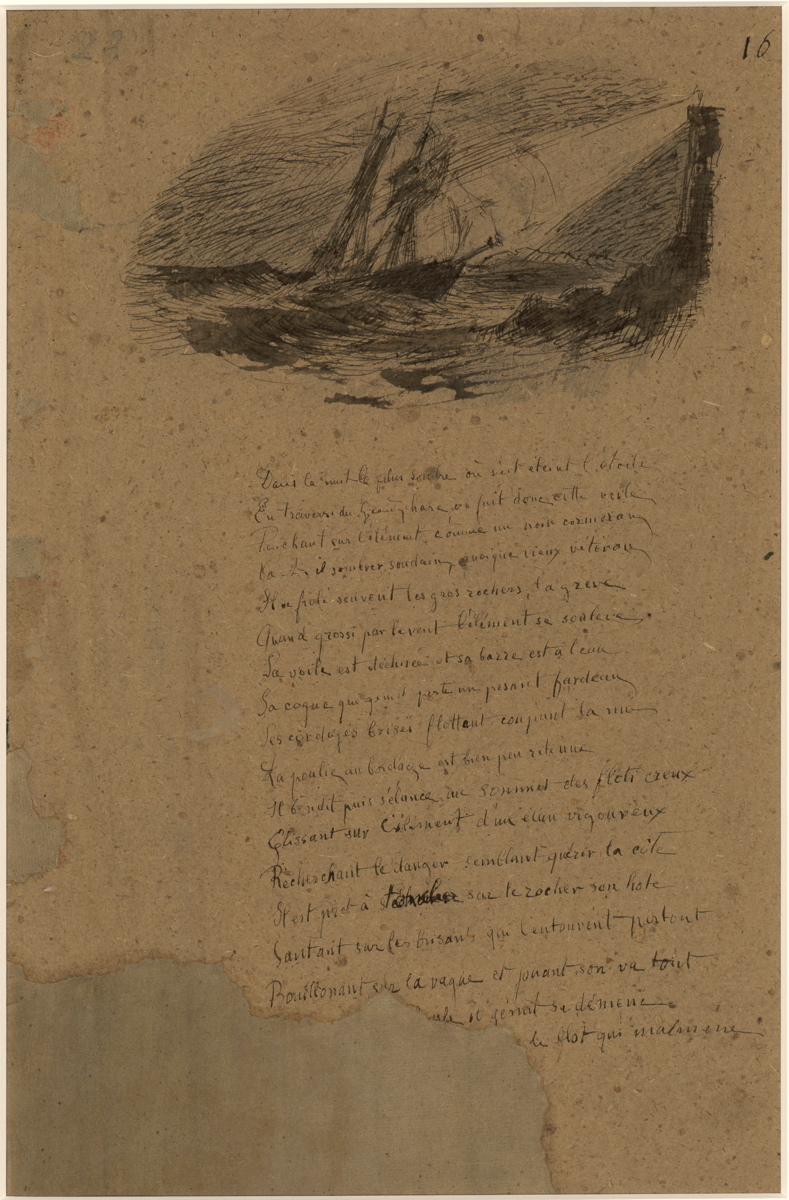 16
Dans la nuit la plus sombre où s'est éteint l'étoile
En travers du phare, où fuit donc cette voile
Penchant sur l'élément, comme un noir cormoran
Va-t-il sombrer soudain, quoique vieux vétéran
Il a frôlé souvent les gros rochers, la grève
Quand grossi par le vent l'élément se soulève
Sa voile est déchirée et sa barre est à l'eau
Sa coque qui gémit porte un pesant fardeau
Ses cordages brisés flottent coupant la nue
La poulie au bordage est bien peu retenue
Il bondit puis s'élance au sommet des flots creux
Glissant sur l'élément d'un élan vigoureux
Recherchant le danger semblant quérir la côte
Il est prêt à sur le rocher son hote
Sautant sur les brisants qui l'entourent partout
Bouillonant sur la vague et jouant son va tout
il gémit se démène
le flot qui malmène